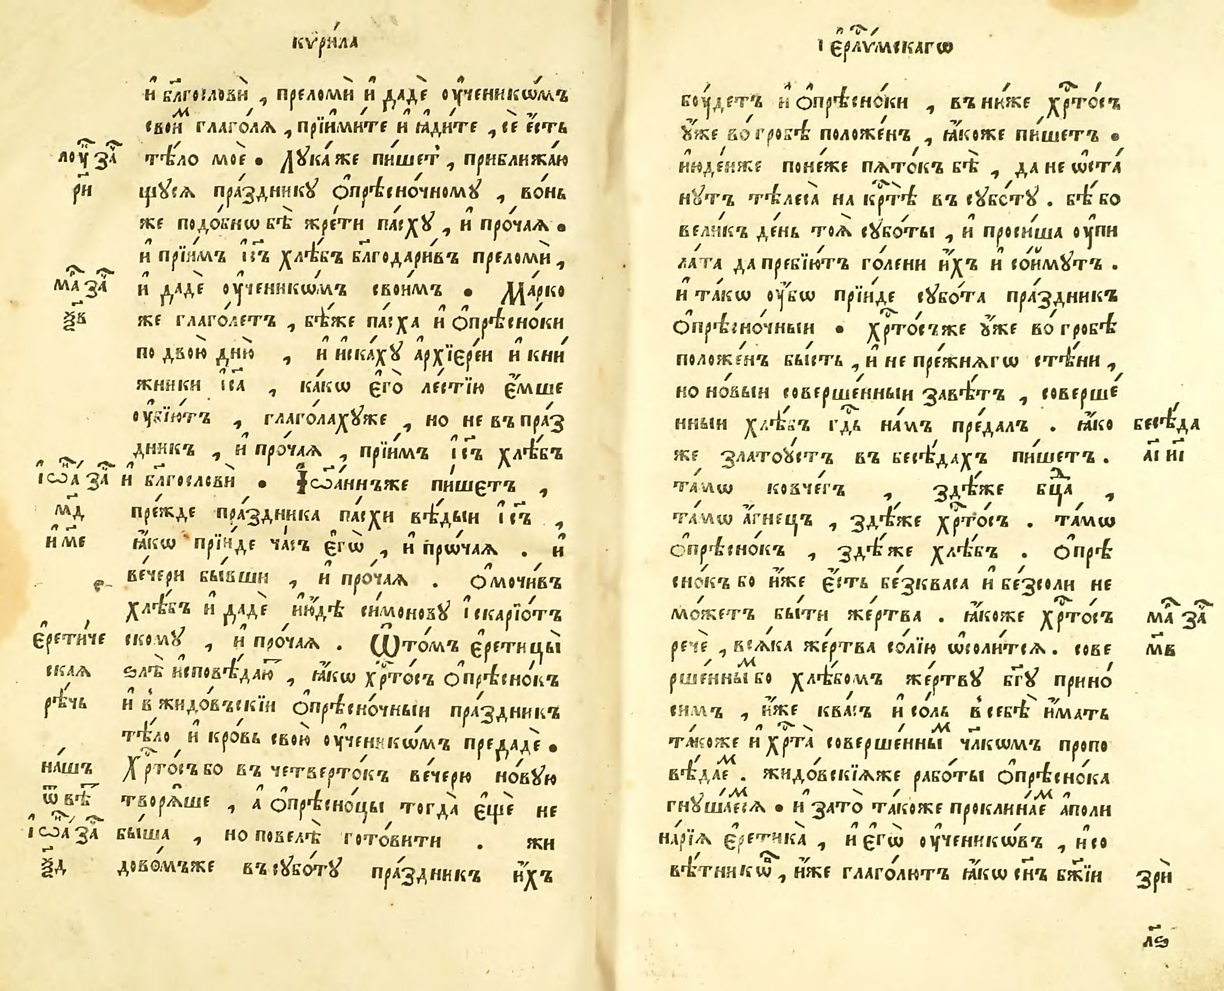 кѷри́ла
и҆ бл҃гослови̑ , преломи̑ и҆ даде̑ оу҆ченикѡ́мъ
свои́м глаго́лѧ , прїими́те и҆ ꙗ҆ди́те , се̑ є҆́сть
лоу̑ за̑ тѣ́ло мое̑ . Лꙋка́же пи́шет , приближа́ю
ри҃ щꙋсѧ пра́здникꙋ ѻ҆прѣсно́чномꙋ , во́нь
же подо́бнѡ бѣ̀ жре́ти па́схꙋ , и҆ про́чаѧ .
и҆ прїи́мъ і҆с҃ъ хлѣ́бъ бл҃годари́въ преломи̑ ,
ма̑ за̑ и҆ даде̑ оу҆ченикѡ́мъ свои́мъ . Ма́рко
ѯ҃в же глаго́летъ , бѣ́же па́сха и҆ ѻ҆прѣсно́ки
по двою̀ дню̀ , и҆ и҆ска́хꙋ а҆рхїере́и и҆ кни́
жники і҆с҃а , ка́кѡ є҆го̀ ле́стїю є҆́мше
оу҆бїю́тъ , глаго́лахꙋже , но не въ пра́з
дникъ , и҆ про́чаѧ , прїи́мъ і҆с҃ъ хлѣ́бъ
і҆ѡ̑а за̑ и҆ бл҃гослови̑ . І҆ѡа́ннъже пи́шетъ ,
м҃д пре́жде пра́здника па́схи вѣ́дыи і҆с҃ъ ,
и҆ м҃е ꙗ҆́кѡ прїи́де ча́съ є҆гѡ̀ , и҆ прѡ́чаѧ . и҆
ве́чери бы́вши , и҆ про́чаѧ . ѻ҆мочи́въ
хлѣ́бъ и҆ даде̑ и҆ю́дѣ си́моновꙋ і҆скарїо́тъ
є҆рети́че скомꙋ , и҆ про́чаѧ . Ѿто́мъ є҆рети́цы
скаѧ ѕлѣ̀ и҆сповѣ́даю҃ , ꙗ҆́кѡ хр҃то́съ ѻ҆прѣсно́къ
рѣ́чь и҆ в жидо́въскїи ѻ҆прѣсно́чныи пра́здникъ
тѣ́ло и҆ кро́вь свою̀ оу҆ченикѡ́мъ предаде̑ .
на́шъ Хр҃то́съ бо въ четверто́къ ве́черю но́вꙋю
ѿвѣ҃ творѧ́ше , а҆ ѻ҆прѣсно́цы тогда̀ є҆щѐ не
і҆ѡ̑а за̑ бы́ша , но повелѣ̀ гото́вити . жи
ѯ҃д до́вомъже въ сꙋбо́тꙋ пра́здникъ и҆́хъ
і҆єр҃лꙋ́мскагѡ
боу́детъ и҆ ѻ҆прѣсно́ки , въ ни́же хр҃то́съ
ᲂу҆же во гро́бѣ положе́нъ , ꙗ҆́коже пи́шетъ .
и҆юде́иже поне́же пѧто́къ бѣ̀ , да не ѡ҆ста́
нꙋтъ тѣлеса̀ на кр҃тѣ̀ въ сꙋбо́тꙋ . бѣ́ бо
вели́къ де́нь тоѧ̀ сꙋбо́ты , и҆ проси́ша оу҆ пи
ла́та да пребїю́тъ го́лени и҆́хъ и҆ со́имꙋтъ .
и҆ та́кѡ оу҆́бѡ прїи́де сꙋбо́та пра́здникъ
ѻ҆прѣсно́чныи . хр҃то́съже ᲂу҆же во гро́бѣ
положе́нъ бы́сть , и҆ не пре́жнѧгѡ стѣ́ни ,
но но́выи соверше́нныи завѣ́тъ , соверше́
нныи хлѣ́бъ гд҃ь на́мъ преда́лъ . ꙗ҆́ко бесѣ́да
же златоу́стъ въ бесѣ́дахъ пи́шетъ . а҃і н҃і
та́мѡ ковче́гъ , здѣ́же бц҃а ,
та́мѡ а҆́гнецъ , здѣ́же хр҃то́съ . та́мѡ
ѻ҆прѣсно́къ , здѣ́же хлѣ́бъ . ѻ҆прѣ
сно́къ бо и҆́же є҆́сть бе́зкваса и҆ бе́зсоли не
мо́жетъ бы́ти же́ртва . ꙗ҆́коже хр҃то́съ ма̑ за̑
рече̑ , всѧ́ка же́ртва со́лїю ѡ҆соли́тсѧ . сове м҃в
рше́нным бо хлѣ́бомъ же́ртвꙋ бг҃ꙋ прино́
симъ , и҆́же ква́съ и҆ со́ль в себѣ̀ и҆́мать
та́коже и҆ хр҃та̀ соверше́нным чл҃кѡмъ пропо
вѣ́даем . жидо́вскїѧже рабо́ты ѻ҆прѣсно́ка
гнꙋша́емсѧ . и҆ зато̀ та́коже проклина́ем а҆поли
на́рїѧ є҆ретика̀ , и҆ є҆гѡ̀ оу҆ченикѡ́въ , и҆ со
вѣ́тникѡв , и҆́же глаго́лютъ ꙗ҆́кѡ сн҃ъ бж҃їи зри̑
л҃ѕ